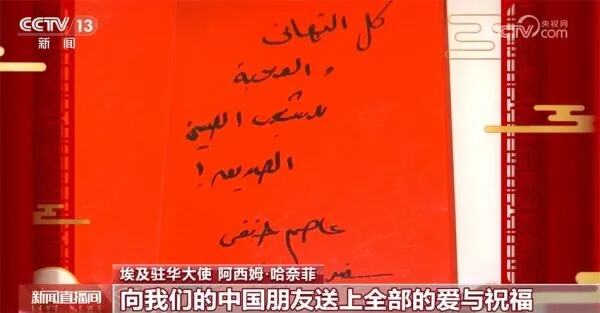 CCTV 13
新闻
央视网
cctv.com
كل التهاني
و المحبة
للشعب الصيني
الصديق !
عاصم حنفي
埃及驻华大使 阿西姆·哈奈菲
新闻直播间
LIVE NEWS
向我们的中国朋友送上全部的爱与祝福